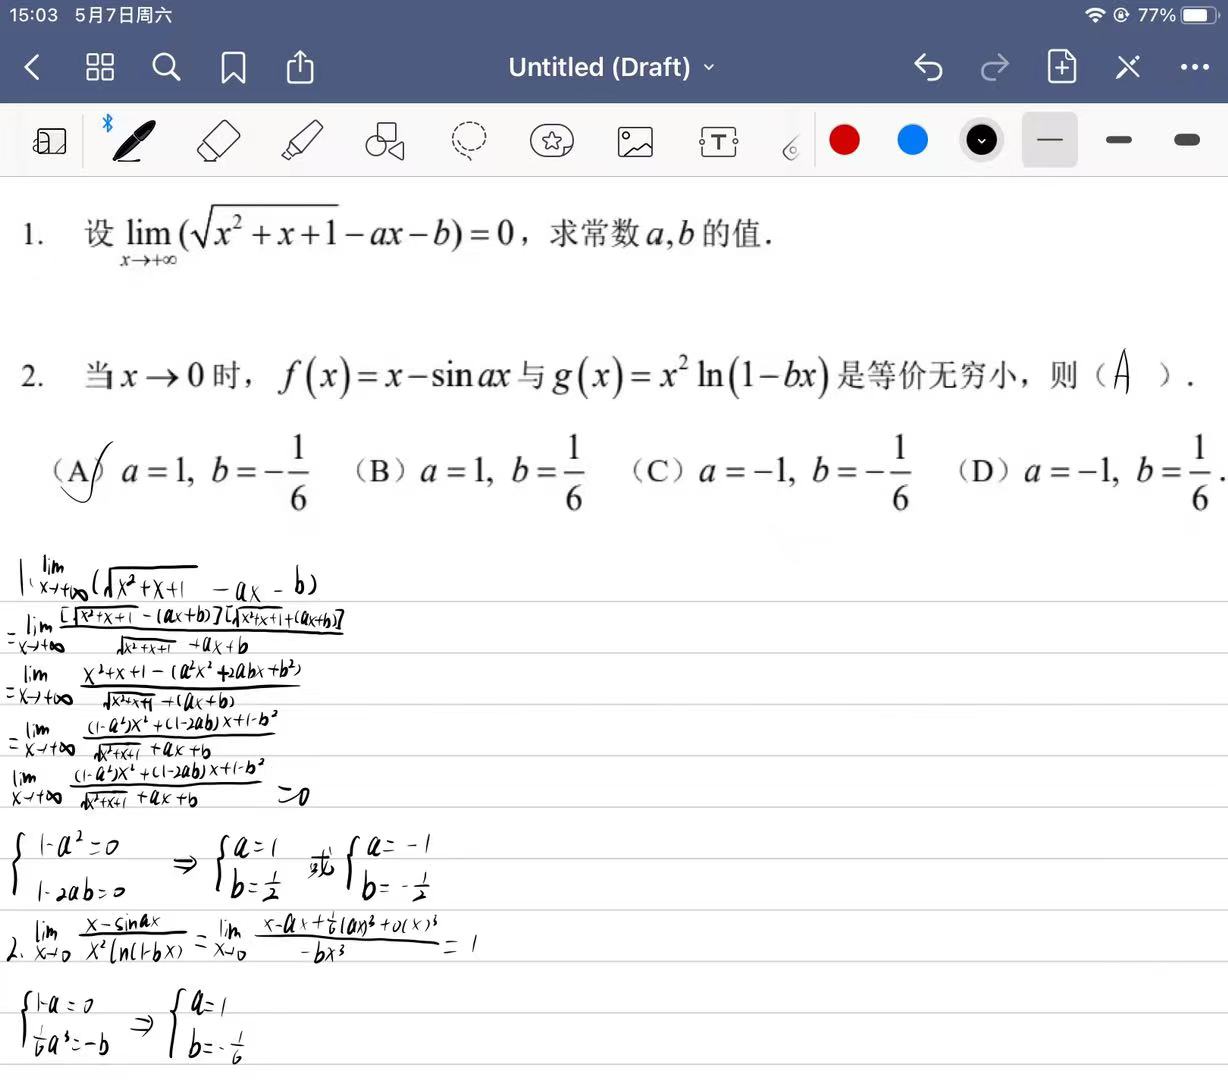 15:03 5月7日周六 77%
Untitled (Draft)
T
1. 设 lim x→+∞ (√(x²+x+1)−ax−b)=0，求常数a,b的值．
2. 当x→0时，f(x)=x−sin ax与g(x)=x² ln(1−bx)是等价无穷小，则（A）．
（A）a=1, b=−1/6 （B）a=1, b=1/6 （C）a=−1, b=−1/6 （D）a=−1, b=1/6.
1. lim x→+∞ (√(x²+x+1) −ax−b)
= lim x→+∞ [√(x²+x+1)−(ax+b)][√(x²+x+1)+(ax+b)] / (√(x²+x+1)+ax+b)
= lim x→+∞ (x²+x+1−(a²x²+2abx+b²)) / (√(x²+x+1)+(ax+b))
= lim x→+∞ ((1-a²)x²+(1-2ab)x+1-b²) / (√(x²+x+1)+ax+b)
lim x→+∞ ((1-a²)x²+(1-2ab)x+1-b²) / (√(x²+x+1)+ax+b) =0
{ 1-a²=0 1-2ab=0 ⇒ { a=1 b=1/2 或 { a=-1 b=-1/2
2. lim x→0 (x-sinax) / (x²ln(1-bx)) = lim x→0 (x-ax+1/6(ax)³+o(x)³) / (-bx³) = 1
{ 1-a=0 1/6a³=-b ⇒ { a=1 b=-1/6